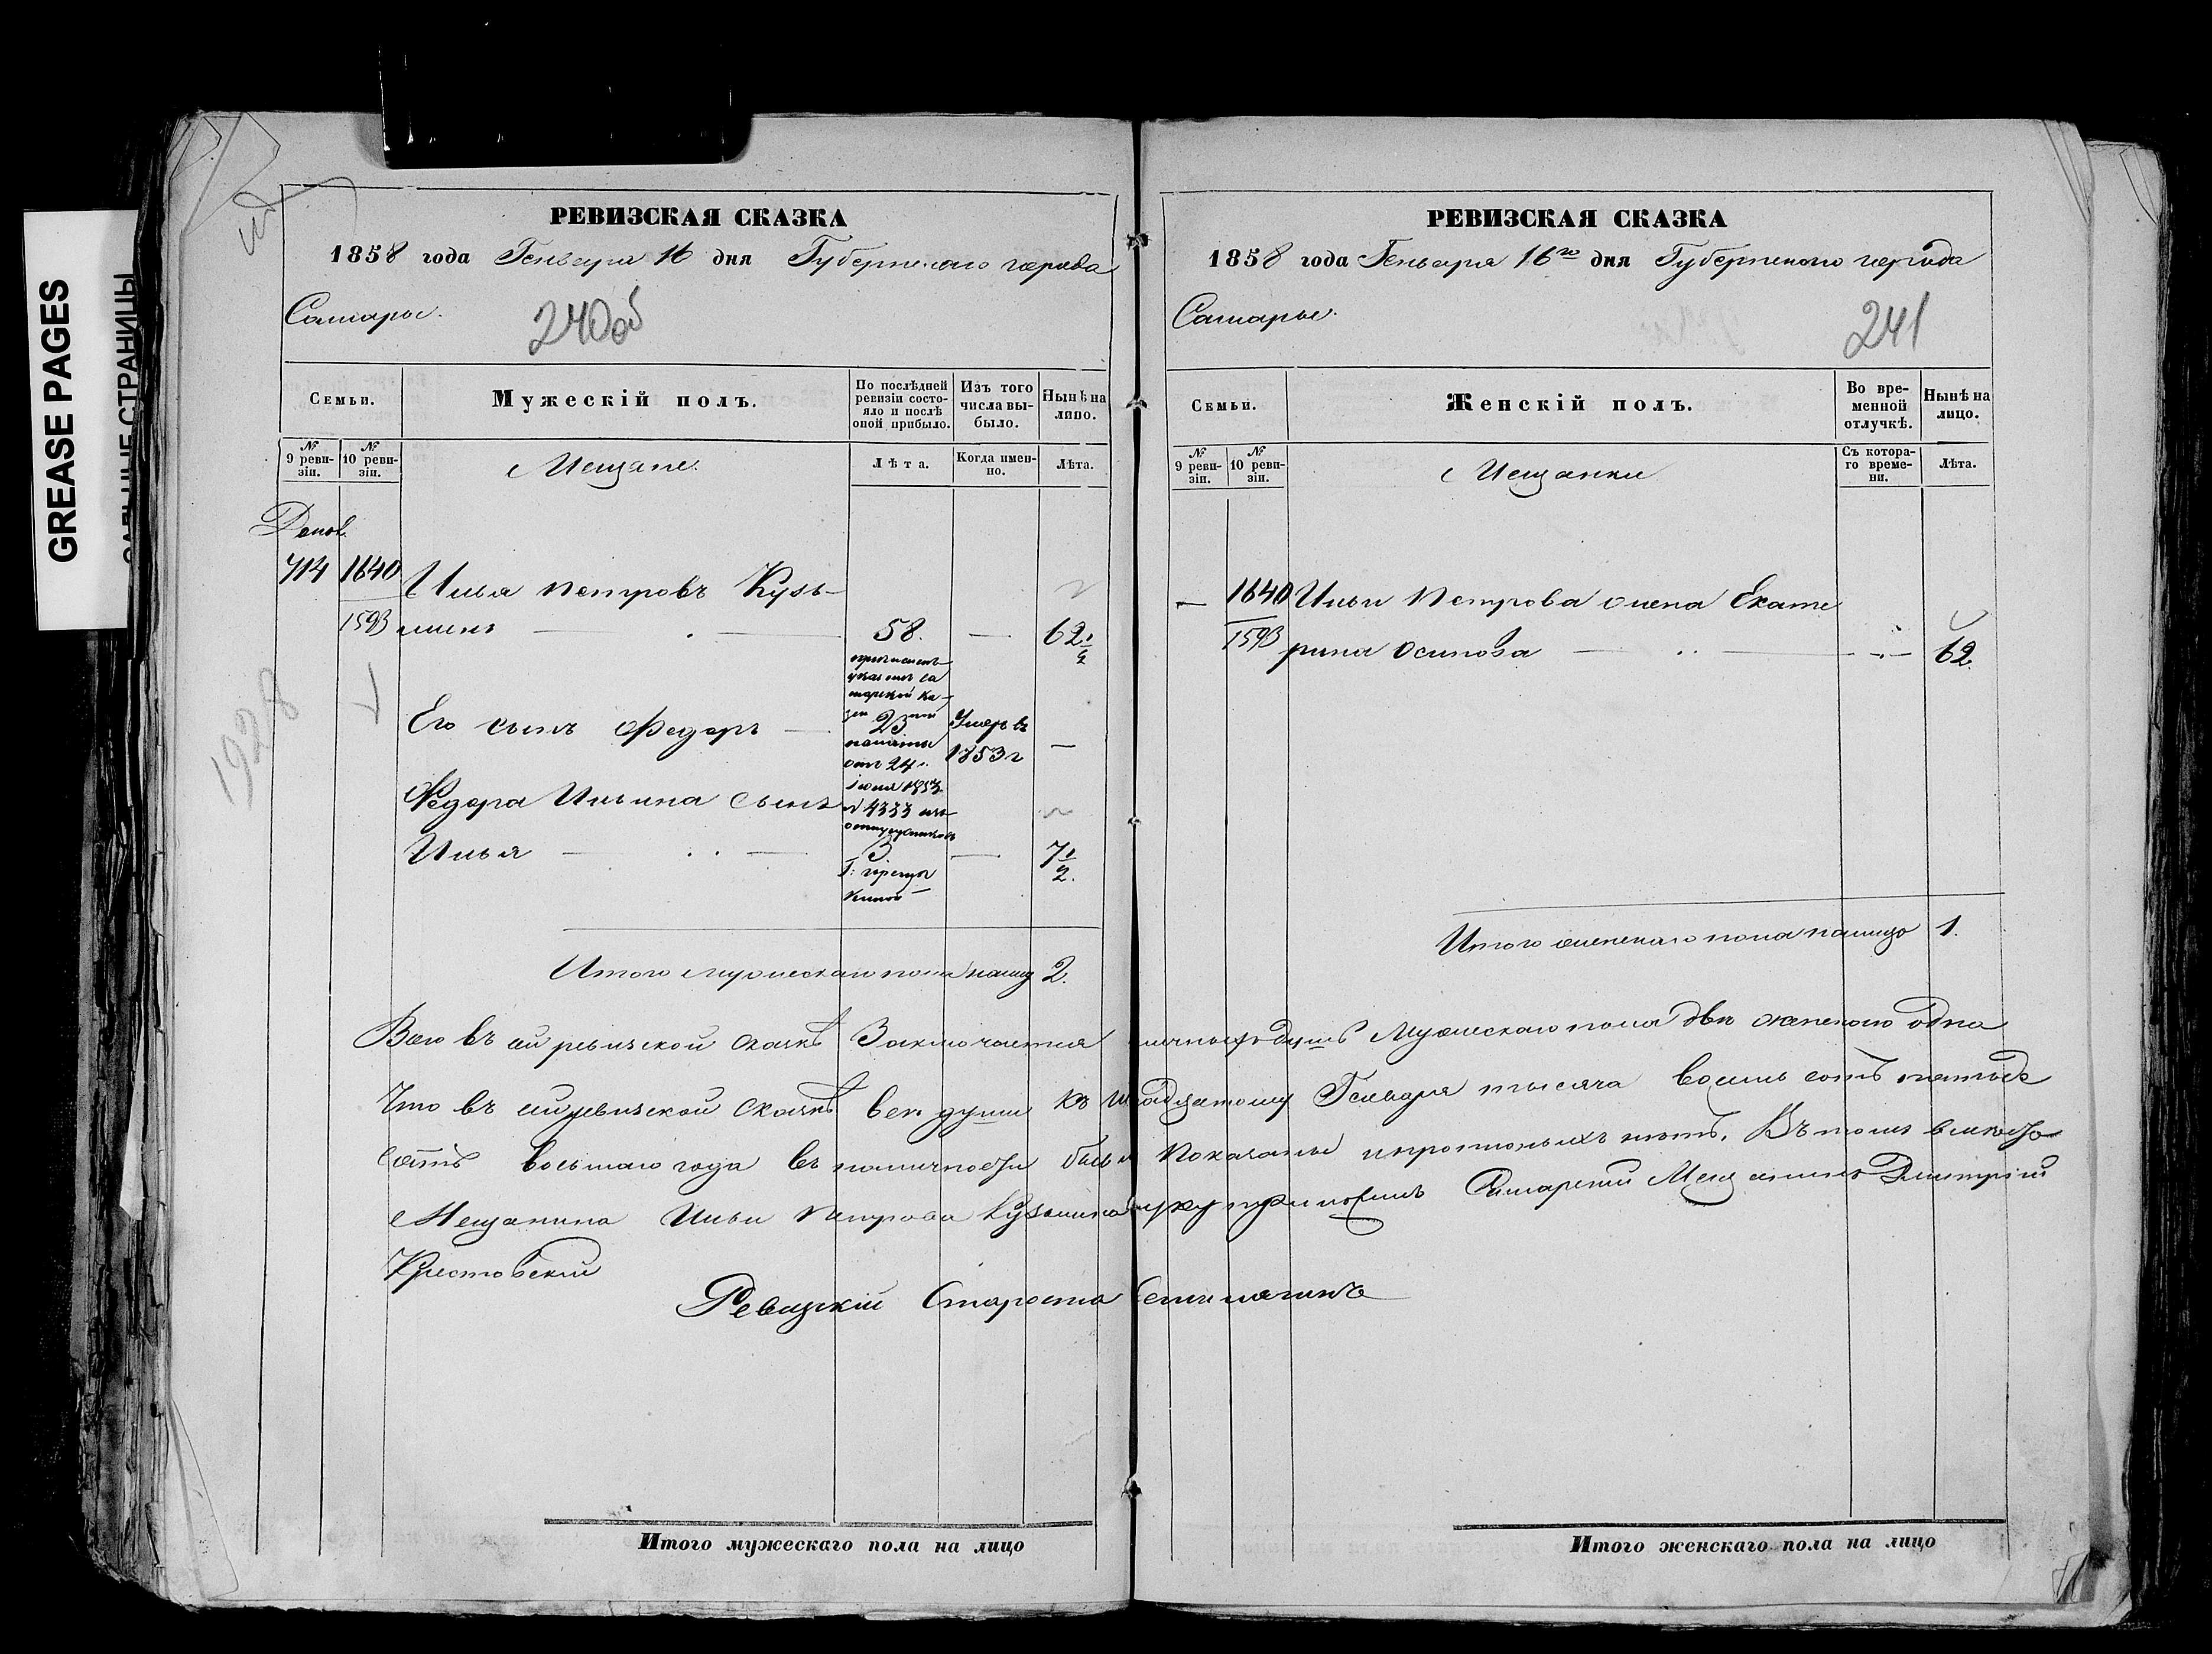 GREASE PAGES
САЛЬНЫЕ СТРАНИЦЫ
РЕВИЗСКАЯ СКАЗКА
1858 года Генваря 16 дня Губернскаго города
Самары.
240об
Семьи.
Мужескій полъ.
По послѣдней ревизіи состояло и послѣ оной прибыло.
Изъ того числа выбыло.
Нынѣ на лицо.
№ 9 ревизіи.
№ 10 ревизіи.
Мещане.
Лѣта.
Когда именно.
Лѣта.
Допол.
714 1640 Илья Петровъ Кузь-
1593 минъ — 58. — 62 1/2
причисленъ
указомъ Са
марской Ка
зен ной
Его сынъ Федоръ — 23 Умеръ въ
палаты
отъ 24 1853 г —
іюля 1853
Федора Ильина сынъ № 4333 изъ
отпущенниковъ
Илья — 3 — 7 1/2
Итого мужескаго пола налицо 2.
1928
РЕВИЗСКАЯ СКАЗКА
1858 года Генваря 16го дня Губернскаго города
Самары.
241
Семьи.
Женскій полъ.
Во временной отлучкѣ.
Нынѣ на лицо.
№ 9 ревизіи.
№ 10 ревизіи.
Мещанки
Съ котораго времени.
Лѣта.
— 1640 Ильи Петрова жена Екате
1593 рина Осипова — — 62.
Итого женскаго пола налицо 1.
Всего въ сей ревизской сказкѣ Заключается наличныхъ душъ Мужескаго пола двѣ женскаго одна
Что въ сей ревизской сказкѣ все души къ шестнадцатому Генваря тысяча восемь сотъ пятьде
сятъ восьмаго года въ наличности были показаны и прописныхъ нѣтъ. Въ томъ вмѣсто
Мещанина Ильи Петрова Кузьмина руку приложилъ Самарскій Мещанинъ Дмитрій
Крестовскій
Ревизскій Староста
Итого мужескаго пола на лицо
Итого женскаго пола на лицо